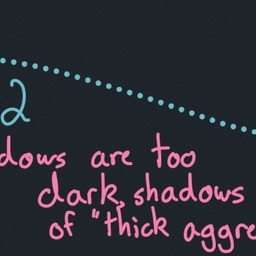 2
dows are too
dark, shadows
of "thick aggre